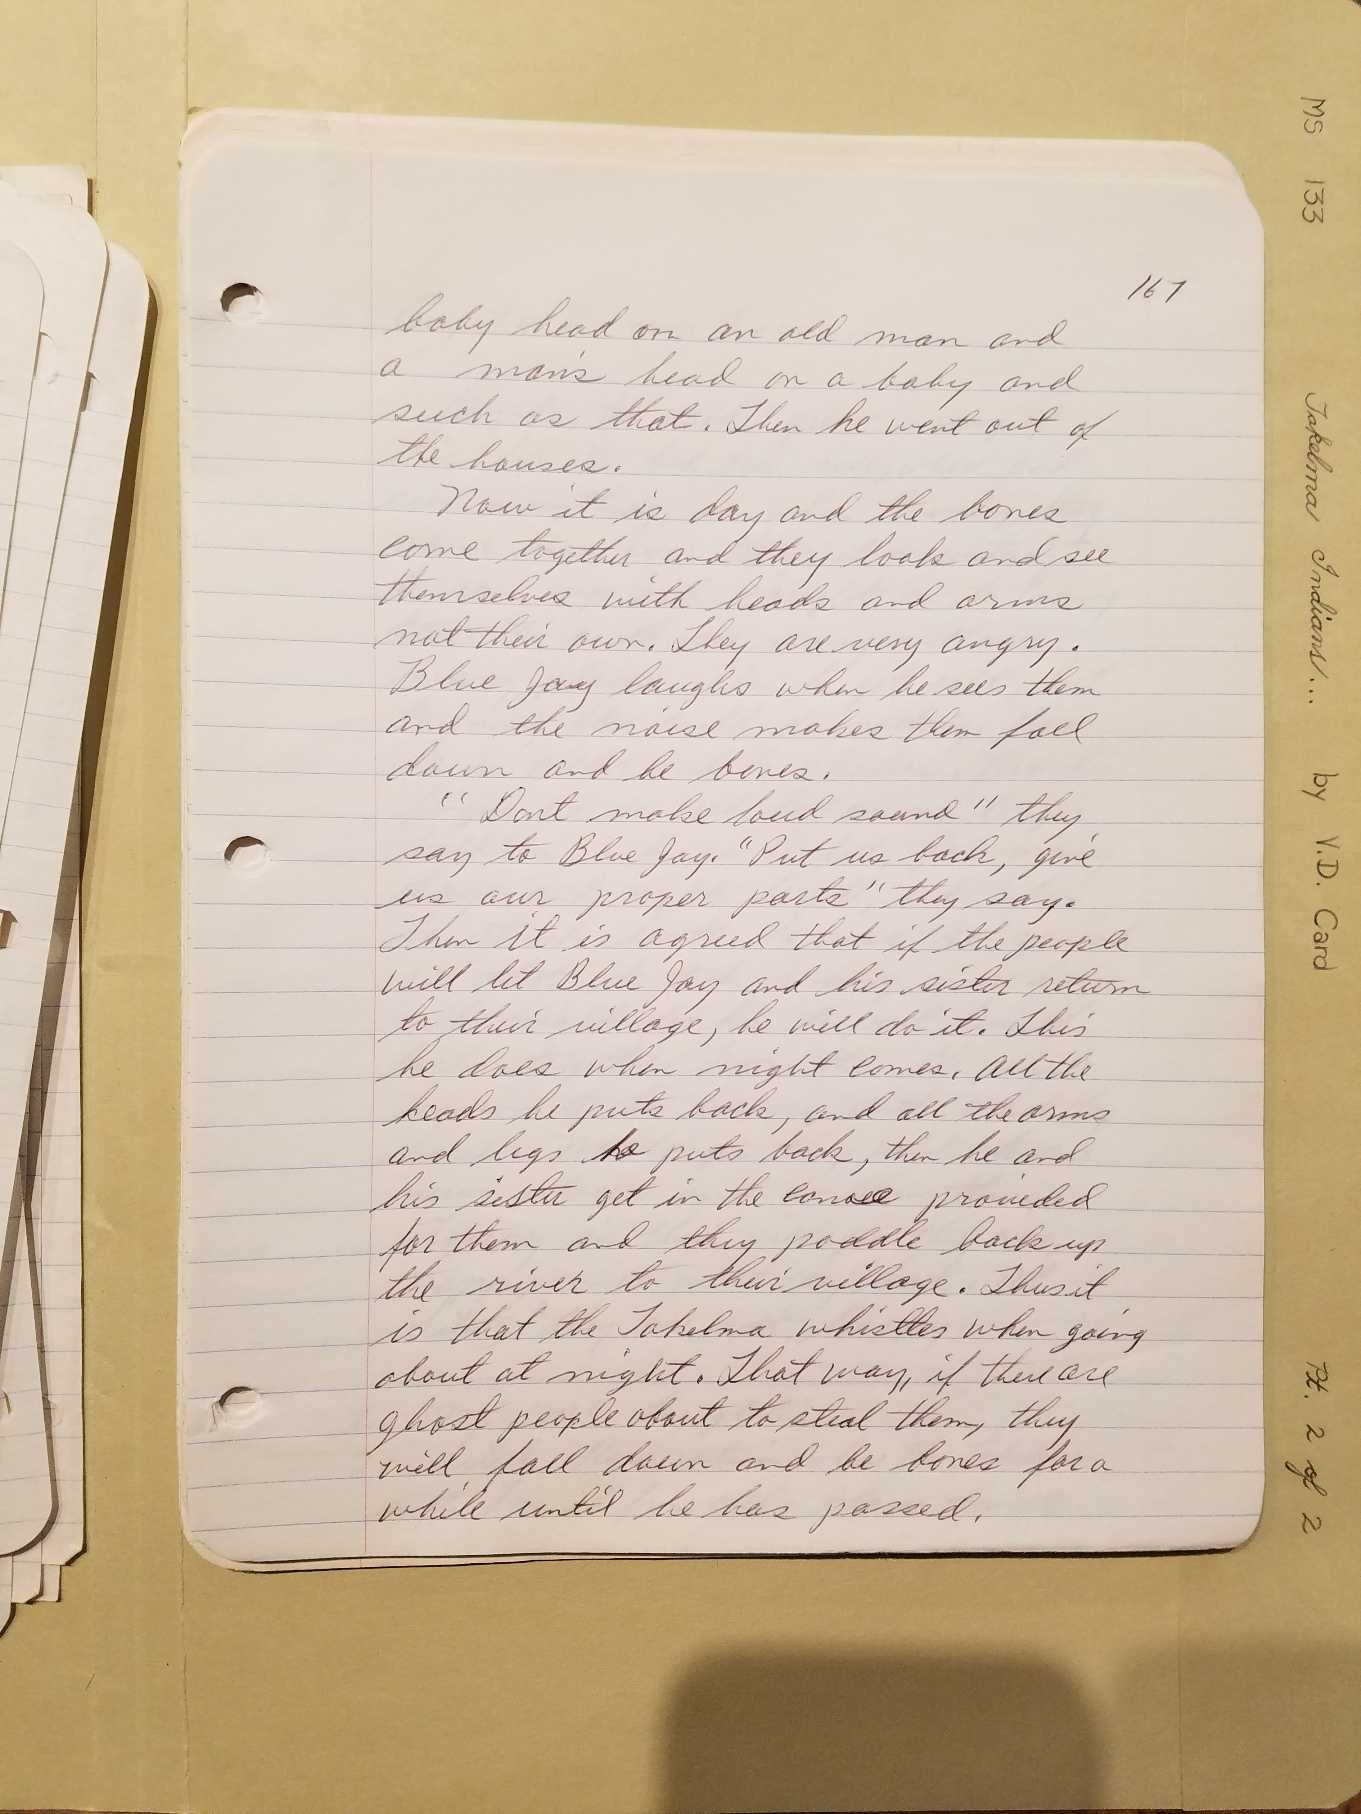 167
baby head on an old man and
a man's head on a baby and
such as that. Then he went out of
the houses.
Now it is day and the bones
come together and they look and see
themselves with heads and arms
not their own. They are very angry.
Blue Jay laughs when he sees them
and the noise makes them fall
down and be bones.
"Dont make loud sound" they
say to Blue Jay. "Put us back, give
us our proper parts" they say.
Then it is agreed that if the people
will let Blue Jay and his sister return
to their village, he will do it. This
he does when night comes. All the
heads he puts back, and all the arms
and legs he puts back, then he and
his sister get in the canoe provided
for them and they paddle back up
the river to their village. Thus it
is that the Takelma whistles when going
about at night. That way, if there are
ghost people about to steal them, they
will fall down and be bones for a
while until he has passed.
MS 133 Takelma Indians... by V.D. Card Pt. 2 of 2